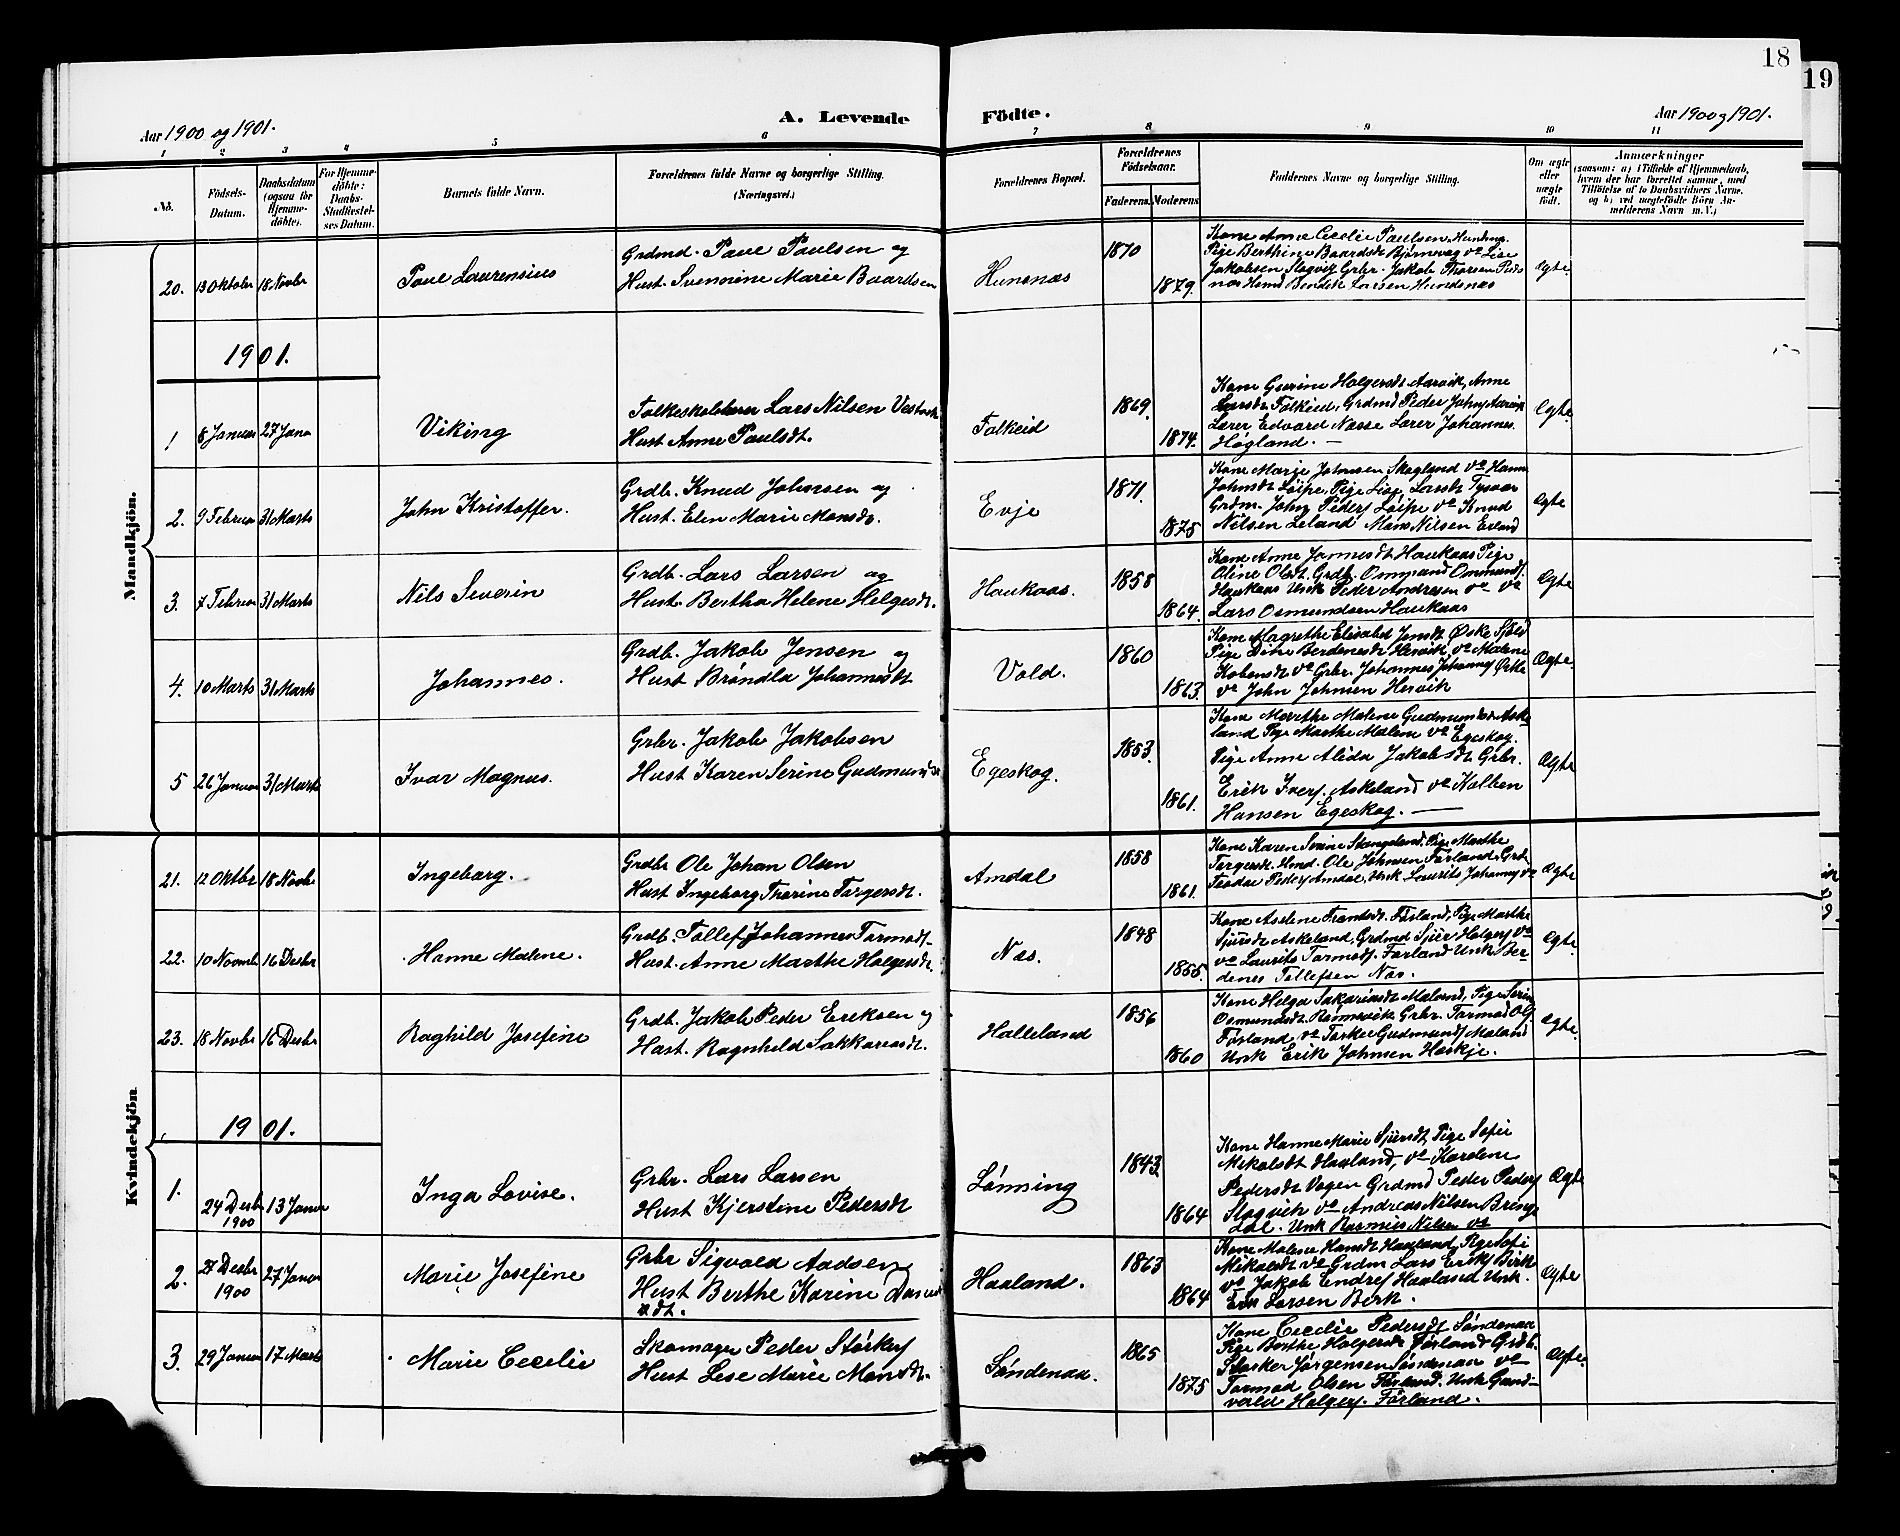 18
19
Aar 1900 og 1901.
A. Levende Födte.
Aar 1900 og 1901.
1 2 3 4 5 6 7 8 9 10 11
No.
Födsels-Datum.
Daabsdatum (ogsaa for Hjemme-döbte).
For Hjemme-döbte: Daabs-Stadfæstelses Datum.
Barnets fulde Navn.
Forældrenes fulde Navne og borgerlige Stilling. (Næringsvei.)
Forældrenes Bopæl.
Forældrenes Födselsaar.
Faderens. Moderens
Faddernes Navne og borgerlige Stilling.
Om ægte eller uægte födt.
Anmærkninger
(saasom: a) i Tilfælde af Hjemmedaab, hvem der har forrettet samme, med Tilföielse af to Daabsvidners Navne, og b) ved uægtefödte Börn Anmelderens Navn m. V.)
Mandkjön.
20. 13 Oktober 18 Novbr Paul Laurensius
Grdmd. Paul Paulsen og
Hust. Svennine Marie Baardsen
Hunsnæs 1870 1879.
Kone Anne Cecelie Paulsen Hundsnæs
Pige Berthine Baardsdt Bjørnevag do Lise
Jakobsen Slogvig Grbr. Jakob Thorsen
Hemd Bendik Larsen Hundsnæs
Ægte
1901.
1 8 Januar 27 Janu Viking
Folkeskolelærer Lars Nilsen
Hust Anne Paulsdt.
Falkeid 1869. 1874.
Kone Gurine Holgersdt Aarvik, Anne
Larsdt Falkeid, Grdmd Peder Johns Aarvik
Lærer Edvard Nasse Lærer Johannes
Høgland. —
Ægte
2. 9 Februar 31 Marts John Kristoffer.
Grdb. Knud Johnsen og
Hust. Elen Marie Monsdt.
Evje 1871. 1875
Kone Marie Johnsen Skogland do Hanna
Johnsdt Løipe, Pige Lise Larsdt Tysvær
Grdm. John Peders Løipe do Knud
Nilsen Leland Mons Nilsen
Ægte
3. 7 Februar 31 Marts Nils Severin
Grdb. Lars Larsen og
Hust. Bertha Helene Helgesdt.
Haukaas. 1858 1864.
Kone Anne Jonnesdt Haukaas Pige
Oline Olsdt. Grdb. Ommund Ommunds.
Haukaas Unk Peder Andresen do do
Lars Osmundsen Haukaas
Ægte
4. 10 Marts 31 Marts Johannes.
Grdb. Jakob Jensen og
Hust Brøndla Johannesdt
Vold. 1860 1863.
Kone Magrethe Elisabet Jensdt Øske Sjold
Pige Dine Berdenesdt Hervik, do Malene
do Grbr. Johannes Johannes
do John Johnsen Hervik
Ægte
5 26 Januar 31 Marts Ivar Magnus.
Grbr. Jakob Jakobsen
Hust Karen Serine Gudmundsdt
Egeskog. 1853. 1861.
Kone Marthe Malene Gudmundsdt Aske
land Pige Marthe Malene do Egeskog.
Pige Anne Alida Jakobsdt Grbr.
Erik Ivers. Askeland do Kolben
Hansen Egeskog. —
Ægte
Kvindekjön
21. 12 Oktbr 18 Novbr Ingeborg.
Grdbr Ole Johan Olsen
Hust Ingeborg Thorine Torgersdt.
Amdal 1858 1861.
Kone Karen Serine Stangeland, Pige Marthe
Torgersdt. Hmd. Ole Johnsen Førland, Grb
Teodor Peders Amdal, Unk Laurits Johannes do
Ægte
22. 10 Novmb 16 Desbr Hanne Malene.
Grdb. Tollef Johannes Tormodt.
Hust. Anne Marthe Holgersdt.
Nes. 1848 1855.
Kone Aselene Fransdt. Førland, Pige Marthe
Sjursdt Askeland, Grdmd Sjur Holgers do
do Laurits Tormods. Førland Unk Ber
denes Tollefsen Nes.
Ægte.
23. 18 Novbr 16 Desbr Raghild Josefine
Grdb. Jakob Peder Eriksen og
Hust. Ragnhild Sakkariasdt.
Halleland 1856 1860
Kone Helga Sakariasdt Maland, Pige Serine
Osmundsdt. Rønnevik Grbr. Tormod Ols
Førland, do Torkel Gudmunds Maland
Unk Erik Johnsen Heskje.
Ægte.
1901.
1. 24 Desbr 1900 13 Januar Inga Lovise.
Grbr. Lars Larsen
Hust Kjerstine Pedersdt
Lønning 1843 1864
Kone Hanne Marie Sjursdt, Pige Sofie
Mikalsdt Haaland, do Karoline
Pedersdt Vogen Grdmd Peder Peders
Slogvik do Andreas Nilsen Bring
dal. Unk Rasmus Nilsen do
Ægte
2. 27 Desbr 1900 27 Januar Marie Josefine
Grbr Sigvald Aadsen
Hust Berthe Karine
sdt.
Haaland. 1863 1864
Kone Malene Hansdt Haaland, Pige Sofie
Mikalsdt do Grdm Lars Eriks Birk
do Jakob Endres Haaland Unk.
Erik Larsen Berk.
Ægte
3. 29 Januar 17 Marts Marie Cecelie
Skomager Peder Størkers
Hust Lise Marie Monsdt.
Søndenaa. 1865 1875
Kone Cecelie Pedersdt Søndenaa
Pige Berthe Holgersdt Førland Grdb.
Størker Jørgensen Søndenaa do
Tormod Olsen Førland. Unk Gund-
vald Holgers. Førland.
Ægte.